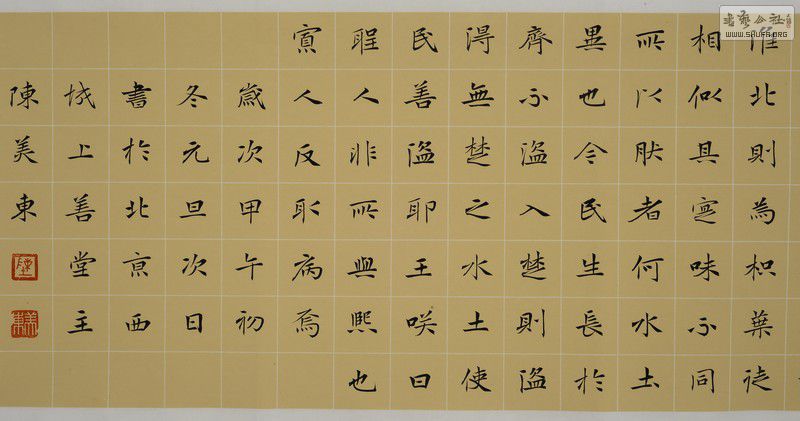 淮北則為枳葉徒
相似其寔味不同
所以肰者何水土
異也今民生長於
齊不盜入楚則盜
得無楚之水土使
民善盜耶王咲曰
聖人非所與熙也
寡人反取病焉
歲次甲午初
冬元旦次日
書於北京西
城上善堂主
陳美東
陳
美東
書藝公社
www.SHUFG.ORG